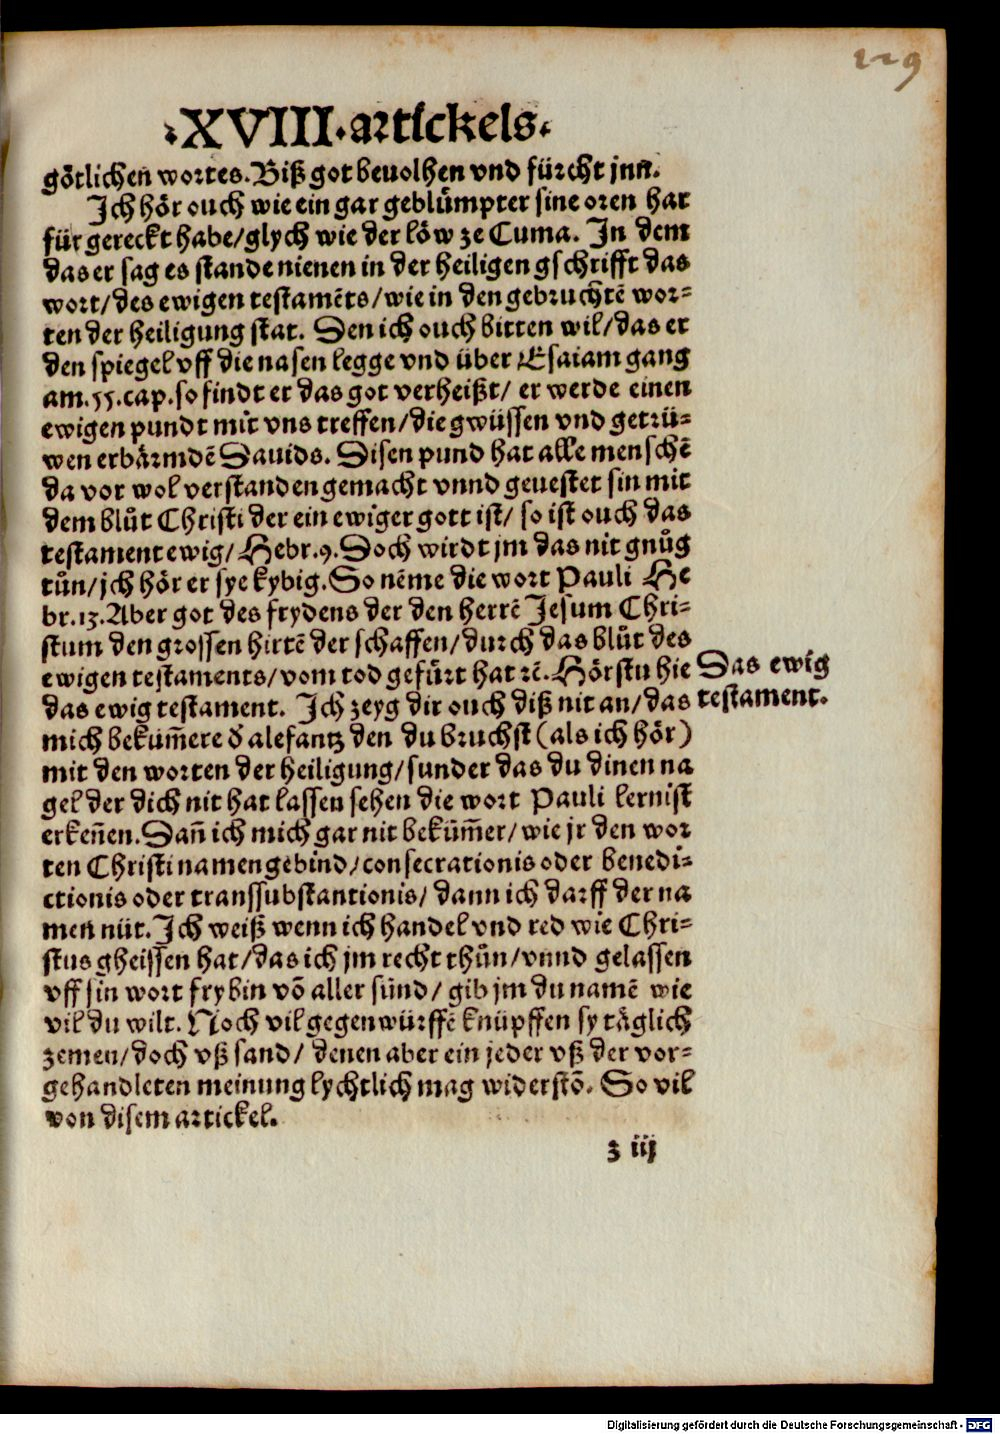 229
·XVIII·artickels·
götlichen wortes. Biß got beuolhen vnd fürcht jnn.
Ich hör ouch wie ein gar geblůmpter sine oren har
für gereckt habe/glych wie der löw ze Cuma. In dem
das er sag es stande nienen in der heiligen gschrifft das
wort/des ewigen testamēts/wie in den gebruchtē wor-
ten der heiligung stat. Den ich ouch bitten wil/das er
den spiegel vff die nasen legge vnd über Esaiam gang
am.55.cap.so findt er das got verheißt/ er werde einen
ewigen pundt mit vns treffen/die gwüssen vnd getrü-
wen erbärmdē Dauids. Disen pund hat alle menschē
da vor wol verstanden gemacht vnnd geuestet sin mit
dem blůt Christi der ein ewiger gott ist/ so ist ouch das
testament ewig/ Hebr.9. Doch wirdt jm das nit gnůg
tůn/jch hör er sye kybig. So nēme die wort Pauli He
br.13. Aber got des frydens der den herrē Jesum Chri-
stum den grossen hirtē der schaffen/durch das blůt des
ewigen testaments/vom tod gefürt hat ꝛc̄. Hörstu hie
das ewig testament. Ich zeyg dir ouch diß nit an/das
Das ewig
testament.
mich bekum̄ere d̓ alefantz den du bruchst (als ich hör)
mit den worten der heiligung/sunder das du dinen na
gel der dich nit hat lassen sehen die wort Pauli lernist
erken̄en. Dan̄ ich mich gar nit bekům̄er/wie jr den wor
ten Christi namen gebind/consecrationis oder benedi-
ctionis oder transsubstantionis/ dann ich darff der na
men nüt. Ich weiß wenn ich handel vnd red wie Chri-
stus gheissen hat/das ich jm recht thůn/vnnd gelassen
vff sin wort fry bin vō aller sünd/ gib jm du namē wie
vil du wilt. Noch vil gegenwürffē knüpffen sy täglich
zemen/doch vß sand/ denen aber ein jeder vß der vor-
gehandleten meinung lychtlich mag widerstō. So vil
von disem artickel.
z iij
Digitalisierung gefördert durch die Deutsche Forschungsgemeinschaft - DFG